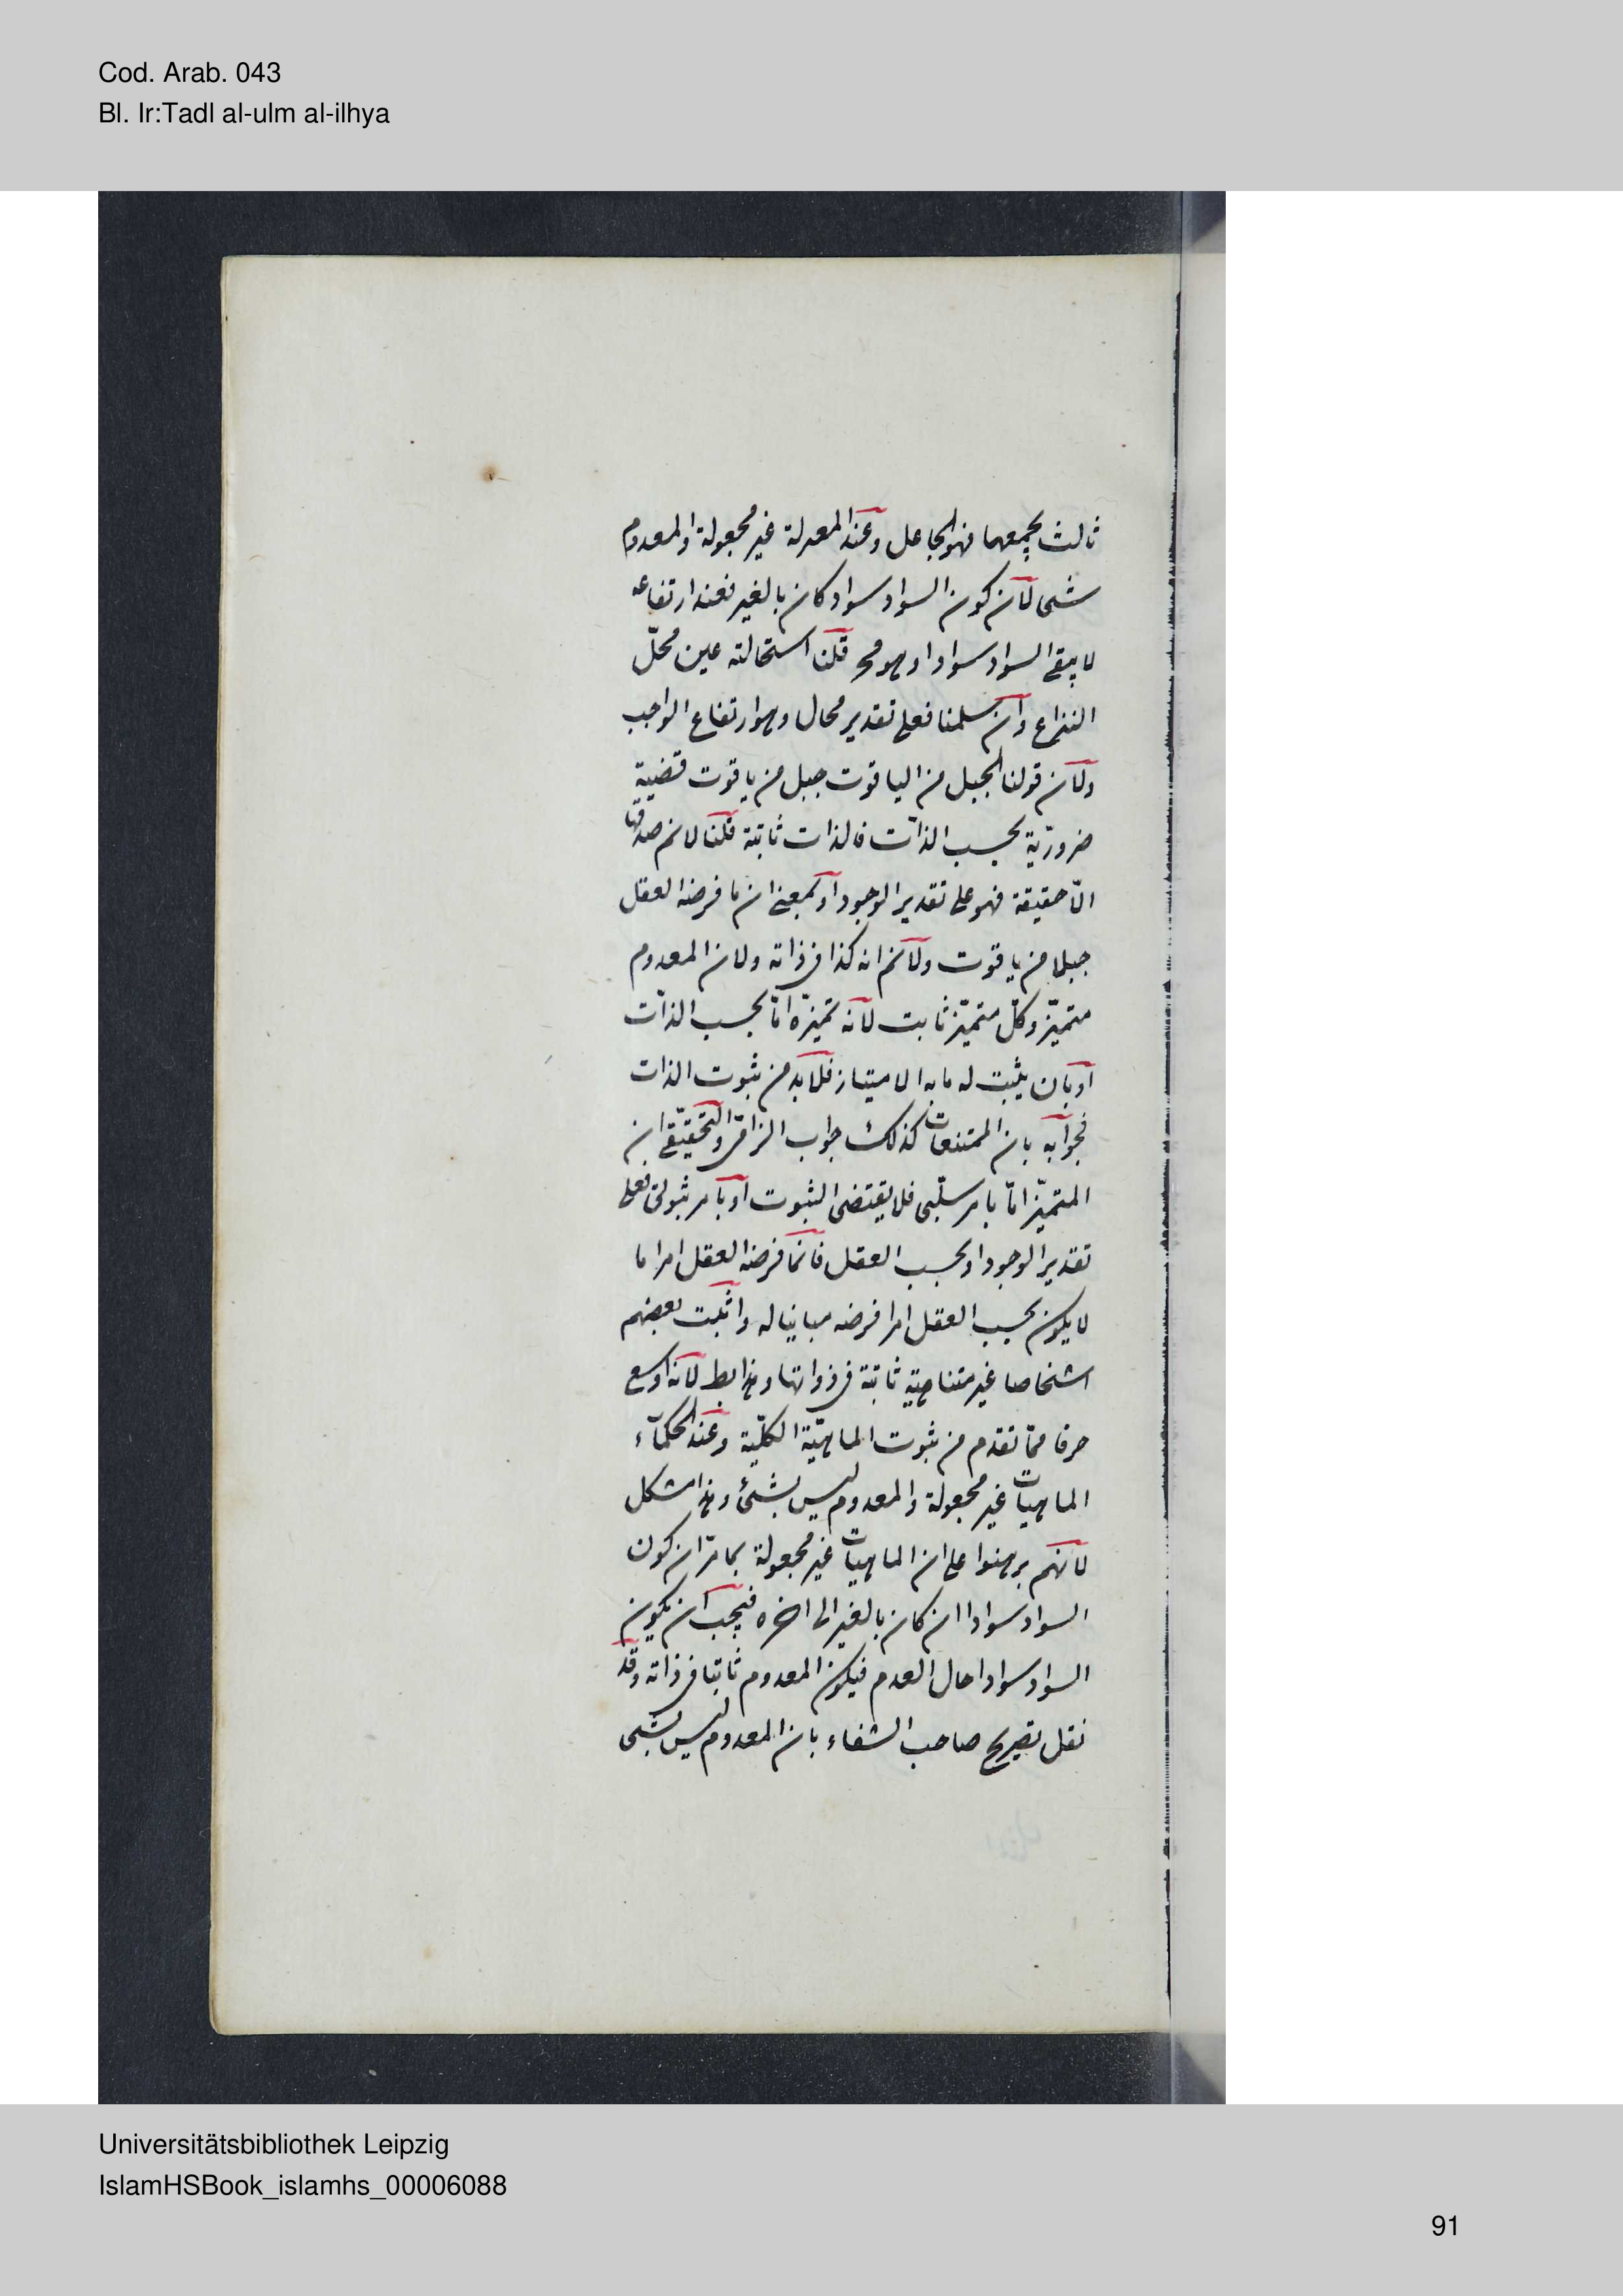 Cod. Arab. 043
Bl. Ir:Tadl al-ulm al-ilhya
ثالث يجمعهما فهو الجاعل وعند المعتزلة غير مجعولة والمعدوم
شئ لان كون السواد سوادا لو كان بالغير فعند ارتفاعه
لا يبقى السواد سوادا وهو مح قلنا استحالته عين محلّ
النزاع وان سلمنا فعلى تقدير محال وهو ارتفاع الواجب
ولان قولنا الجبل من الياقوت جبل من ياقوت قضية
ضروريّة بحسب الذات فالذات ثابتة قلنا لانم صدقها
الّا حقيقة فهو على تقدير الوجود او بمعنى ان ما فرضه العقل
جبلا من ياقوت ولانم انه كذا فى ذاته ولان المعدوم
متميّز وكلّ متميّز ثابت لانه تميزه امّا بحسب الذات
او بان يثبت له ما به الامتياز فلابد من ثبوت الذات
فجوابه بان الممتنعات كذلك جواب الزامى والتحقيقى ان
المتميّز امّا بامر سلبى فلا يقتضى الثبوت او بامر ثبوتى فعلى
تقدير الوجود او بحسب العقل فانما فرضه العقل امرا ما
لا يكون بحسب العقل امرا فرضه مباينا له واثبت بعضهم
اشخاصا غير متناهية ثابتة فى ذواتها وهذا بط لانه اوسع
خرقا ممّا تقدم من ثبوت الماهيّة الكلّية وعند الحكماء
الماهيات غير مجعولة والمعدوم ليس بشئ وهذا مشكل
لانهم برهنوا على ان الماهيات غير مجعولة بما مرّ ان كون
السواد سوادا ان كان بالغير الى اخره فيجب ان يكون
السواد سوادا حال العدم فيكون المعدوم ثابتا فى ذاته وقد
نقل تصريح صاحب الشفاء بان المعدوم ليس بشئ
Universitätsbibliothek Leipzig
IslamHSBook_islamhs_00006088
91